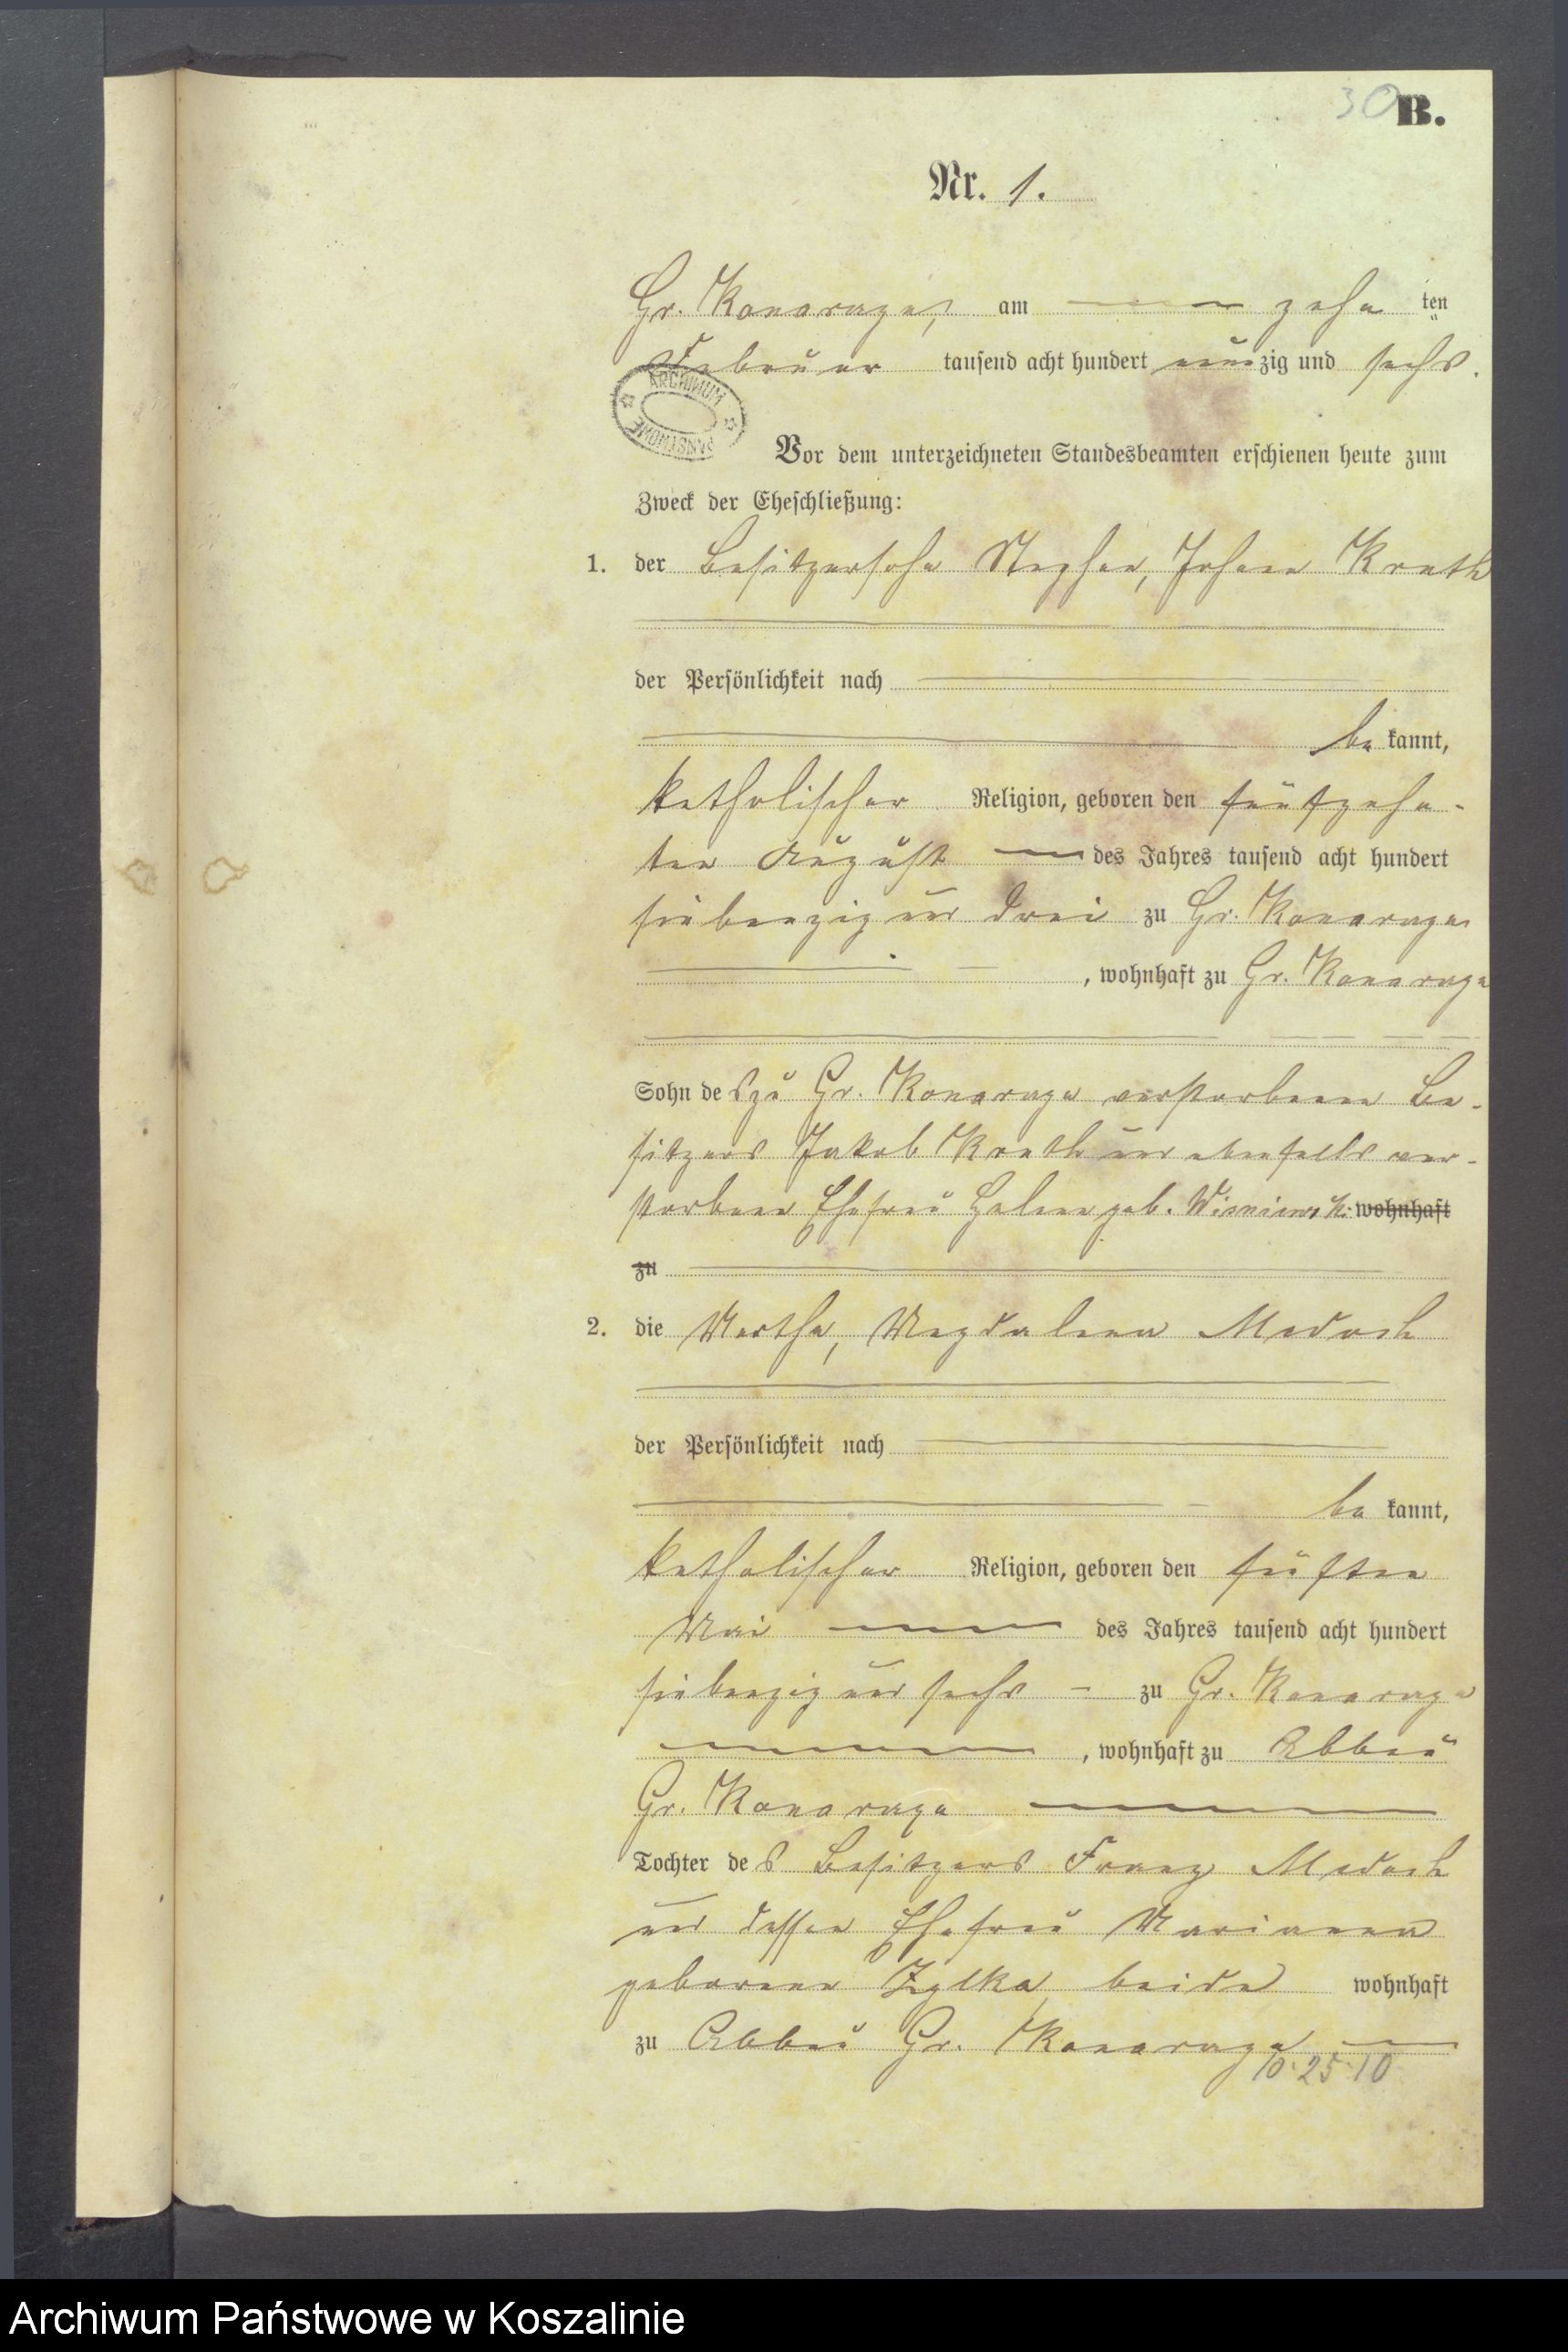 30 B.
Nr. 1.
Gr. Konarzyn, am zehn ten
Februar tausend acht hundert neunzig und sechs.
ARCHIWUM PAŃSTWOWE
Vor dem unterzeichneten Standesbeamten erschienen heute zum
Zweck der Eheschließung:
1. der Besitzersohn Stephan, Johann
der Persönlichkeit nach
be kannt,
katholischer Religion, geboren den fünfzehn-
ten August des Jahres tausend acht hundert
siebenzig und drei zu Gr.
, wohnhaft zu Gr.
Sohn des zu Gr. verstorbenen Be-
sitzers Jakob und ebenfalls ver-
storbene Ehefrau Helene geb. Wisniewski wohnhaft
zu
2. die Martha, Magdalena
der Persönlichkeit nach
be kannt,
katholischer Religion, geboren den fünften
Mai des Jahres tausend acht hundert
siebenzig und sechs zu Gr.
, wohnhaft zu Abbau
Gr.
Tochter des Besitzers Franz
und dessen Ehefrau Marianna
geborene Zylka, beide wohnhaft
zu Abbau Gr.
10·25·10
Archiwum Państwowe w Koszalinie